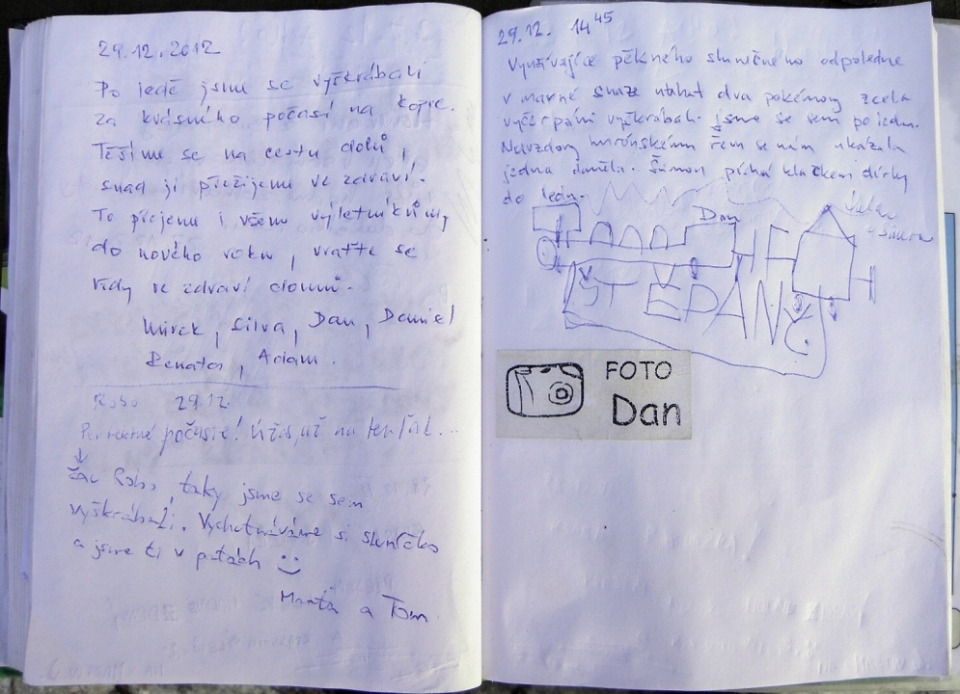 29.12.2012
Po ledě jsme se vyškrábali
za krásného počasí na kopec.
Těšíme se na cestu dolů,
snad ji přežijeme ve zdraví.
To přejeme i všem výletníkům,
do nového roku, vraťte se
vždy ve zdraví domů.
Mirek, Silva, Dan, Daniel
Renata, Adam.
Robo 29.12.
počasie! Užiť, už na
Čau Robo, taky jsme se sem
vyškrábali. Vychutnáváme si sluníčko
a jsme ti v patách
Manta a Tom
29.12. 14 45
Využívajíce pěkného slunečného odpoledne
v marné snaze utahat dva pokémony zcela
vyčerpáni vyškrábali jsme se sem po ledu.
Navzdory huronskému řevu se nám ukázala
jedna daněla. Šimon píchá klackem dírky
do ledu.
Dan
ŠTĚPÁN
FOTO
Dan